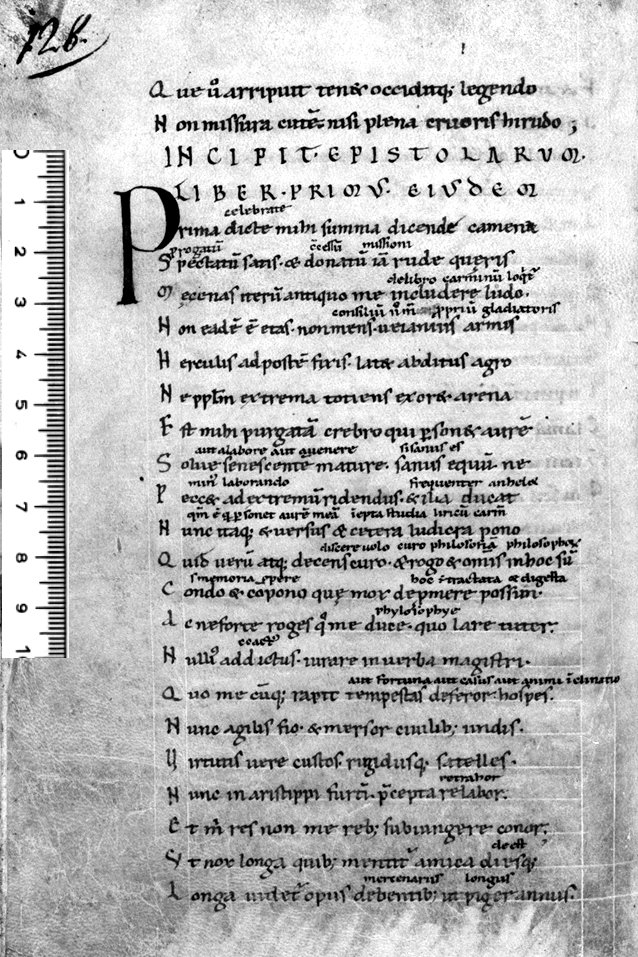 72b.
Que u̅ arripuit tenet occiditq; legendo
Non missura cute̅ nisi plena cruoris hirudo;
INCIPIT·EPISTOLARUM·
LIBER·PRIMUS· EIUSDEM
celebrate
Prima dicte mihi summa dicende camena
p̅rogatu̅ c̅cessu̅ missioni
Spectatu̅ satis· & donatu̅ ia̅ rude queris
de libro carminu̅ loq̅t̅
Mecenas iteru̅ antiquo me includere ludo·
consiliu̅ propriu̅ gladiatoris
Non eade̅ e̅ etas· non mens· ueianius armis
Herculis ad poste̅ fixis· latet abditus agro
Ne pp̅l̅m extrema totiens exoret arena
Est mihi purgata̅ crebro qui p̲sonet aure̅
aut a labore aut a uenere si sanus es
Solue senescente̅ mature· sanus equu̅· ne
min; laborando frequenter anhelet
Peccet ad extremu̅ ridendus· & ilia ducat
q̅m e̅ q̅ p̲sonet aure̅ mea̅ i̅epta studia liricu̅ carm̅
Nunc itaq; & uersus & cetera ludicra pono
discere uolo curo philosophia̅ philosophor̅
Quid ueru̅ atq; decens curo· & rogo & omis in hoc su̅
i̅ memoria repere hoc e̅ tractata & digesta
Condo & copono que mox depmere possim·
phylosophye
Ac ne forte roges q̊ me duce· quo lare tuter·
coactus
Nulli̅ addictus· iurare in uerba magistri·
aut fortuna aut casus aut animi i̅clinatio
Quo me cu̅q; rapit tempestas deferor hospes·
Nunc agilis fio· & mersor ciuilib; undis·
Uirtutis uere custos rigidusq; satelles·
retrahor
Nunc in aristippi furti̅· p̅cepta relabor·
Et m̅ res non me reb; subiungere conor;
deest
Vt nox longa quib; mentit̅ amica diesq;
mercenariis longus
Longa uidet̅ opus debentib; ut piger annus·
0
1
2
3
4
5
6
7
8
9
1